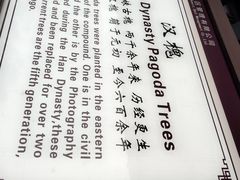 汉槐
Dynasty Pagoda Trees
两千余年来 历经更生
至今六百余年
trees were planted in the eastern
of the compound. One is in the civil
the other is by the Photography
during the Han Dynasty,these
and been replaced for over two
trees are the fifth generation,
ago.